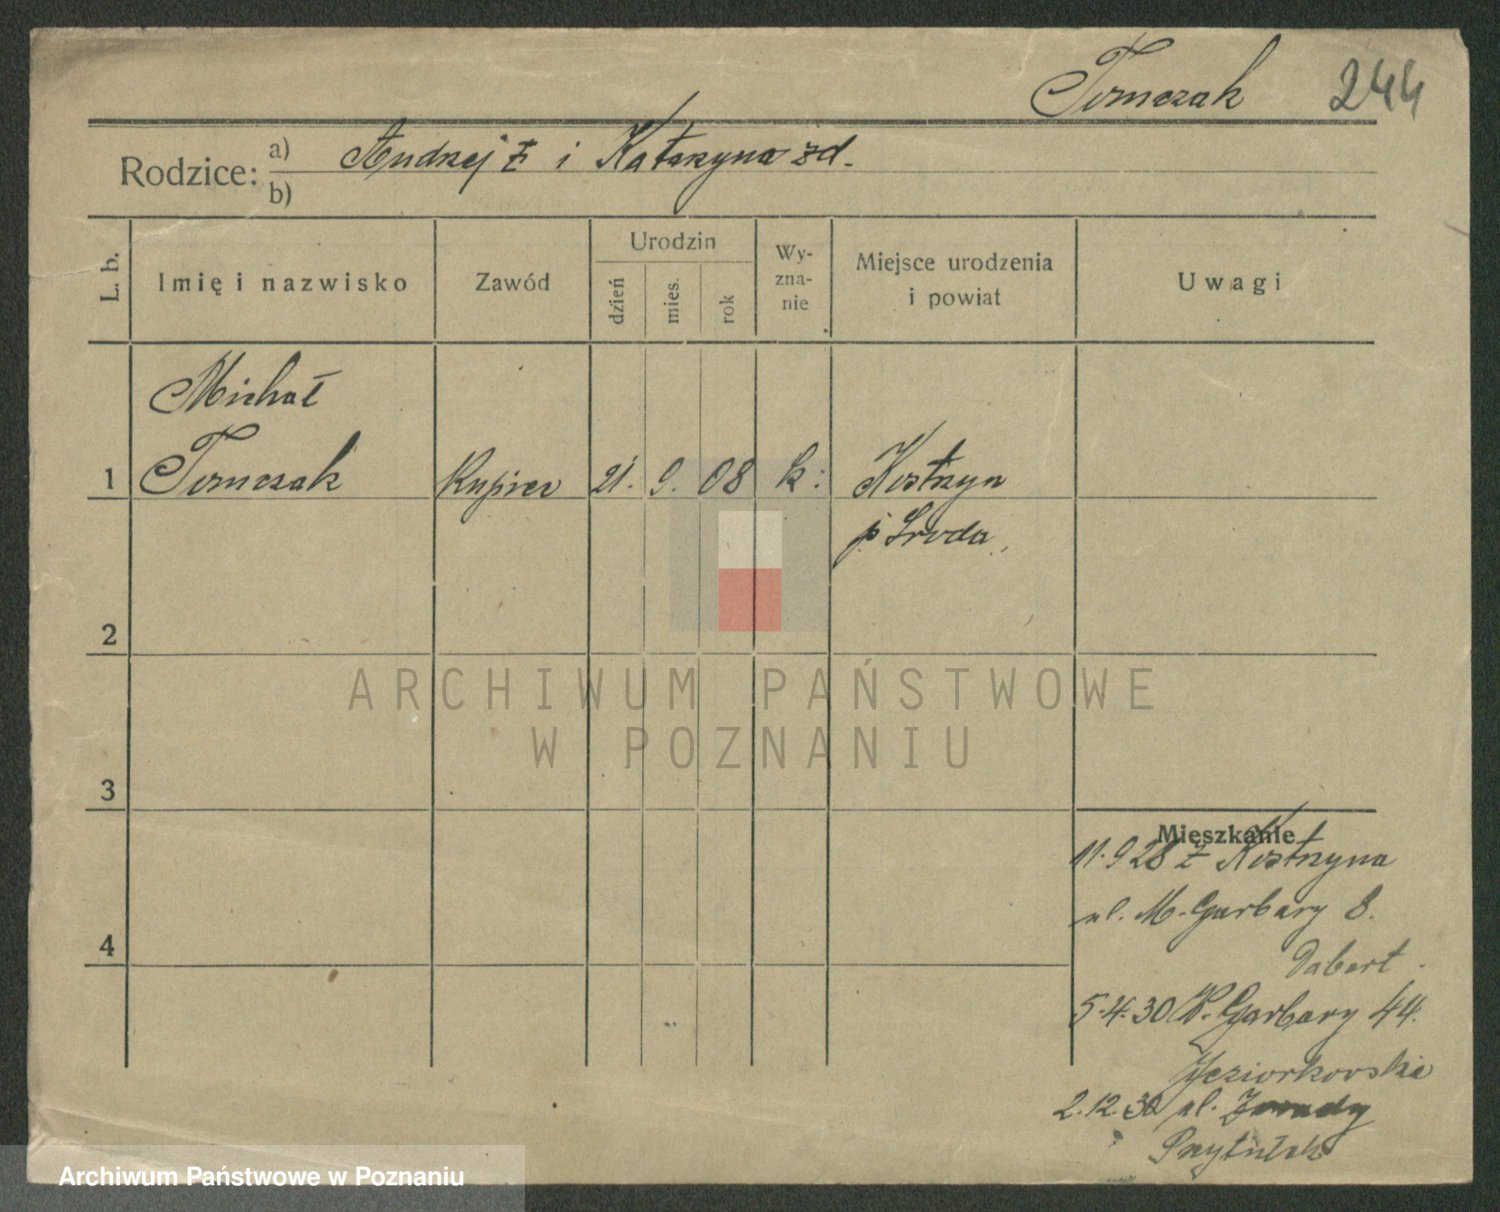 Tomczak 244
Rodzice: a) Andrzej Ł i Katarzyna zd.
b)
L. b.
Imię i nazwisko
Zawód
Urodzin
dzień
mies.
rok
Wy-
zna-
nie
Miejsce urodzenia
i powiat
Uwagi
Michał
1 Tomczak Kupiec 21. 9. 08 k: Kostrzyn
p Sroda
2
3
4
Mieszkanie
11.9 28 z Kostrzyna
ul. M. Garbary 8.
Dabert.
5.4.30 W. Garbary 44.
Jeziorkovska
2.12.30 ul.
Przytułek
ARCHIWUM PAŃSTWOWE
W POZNANIU
Archiwum Państwowe w Poznaniu